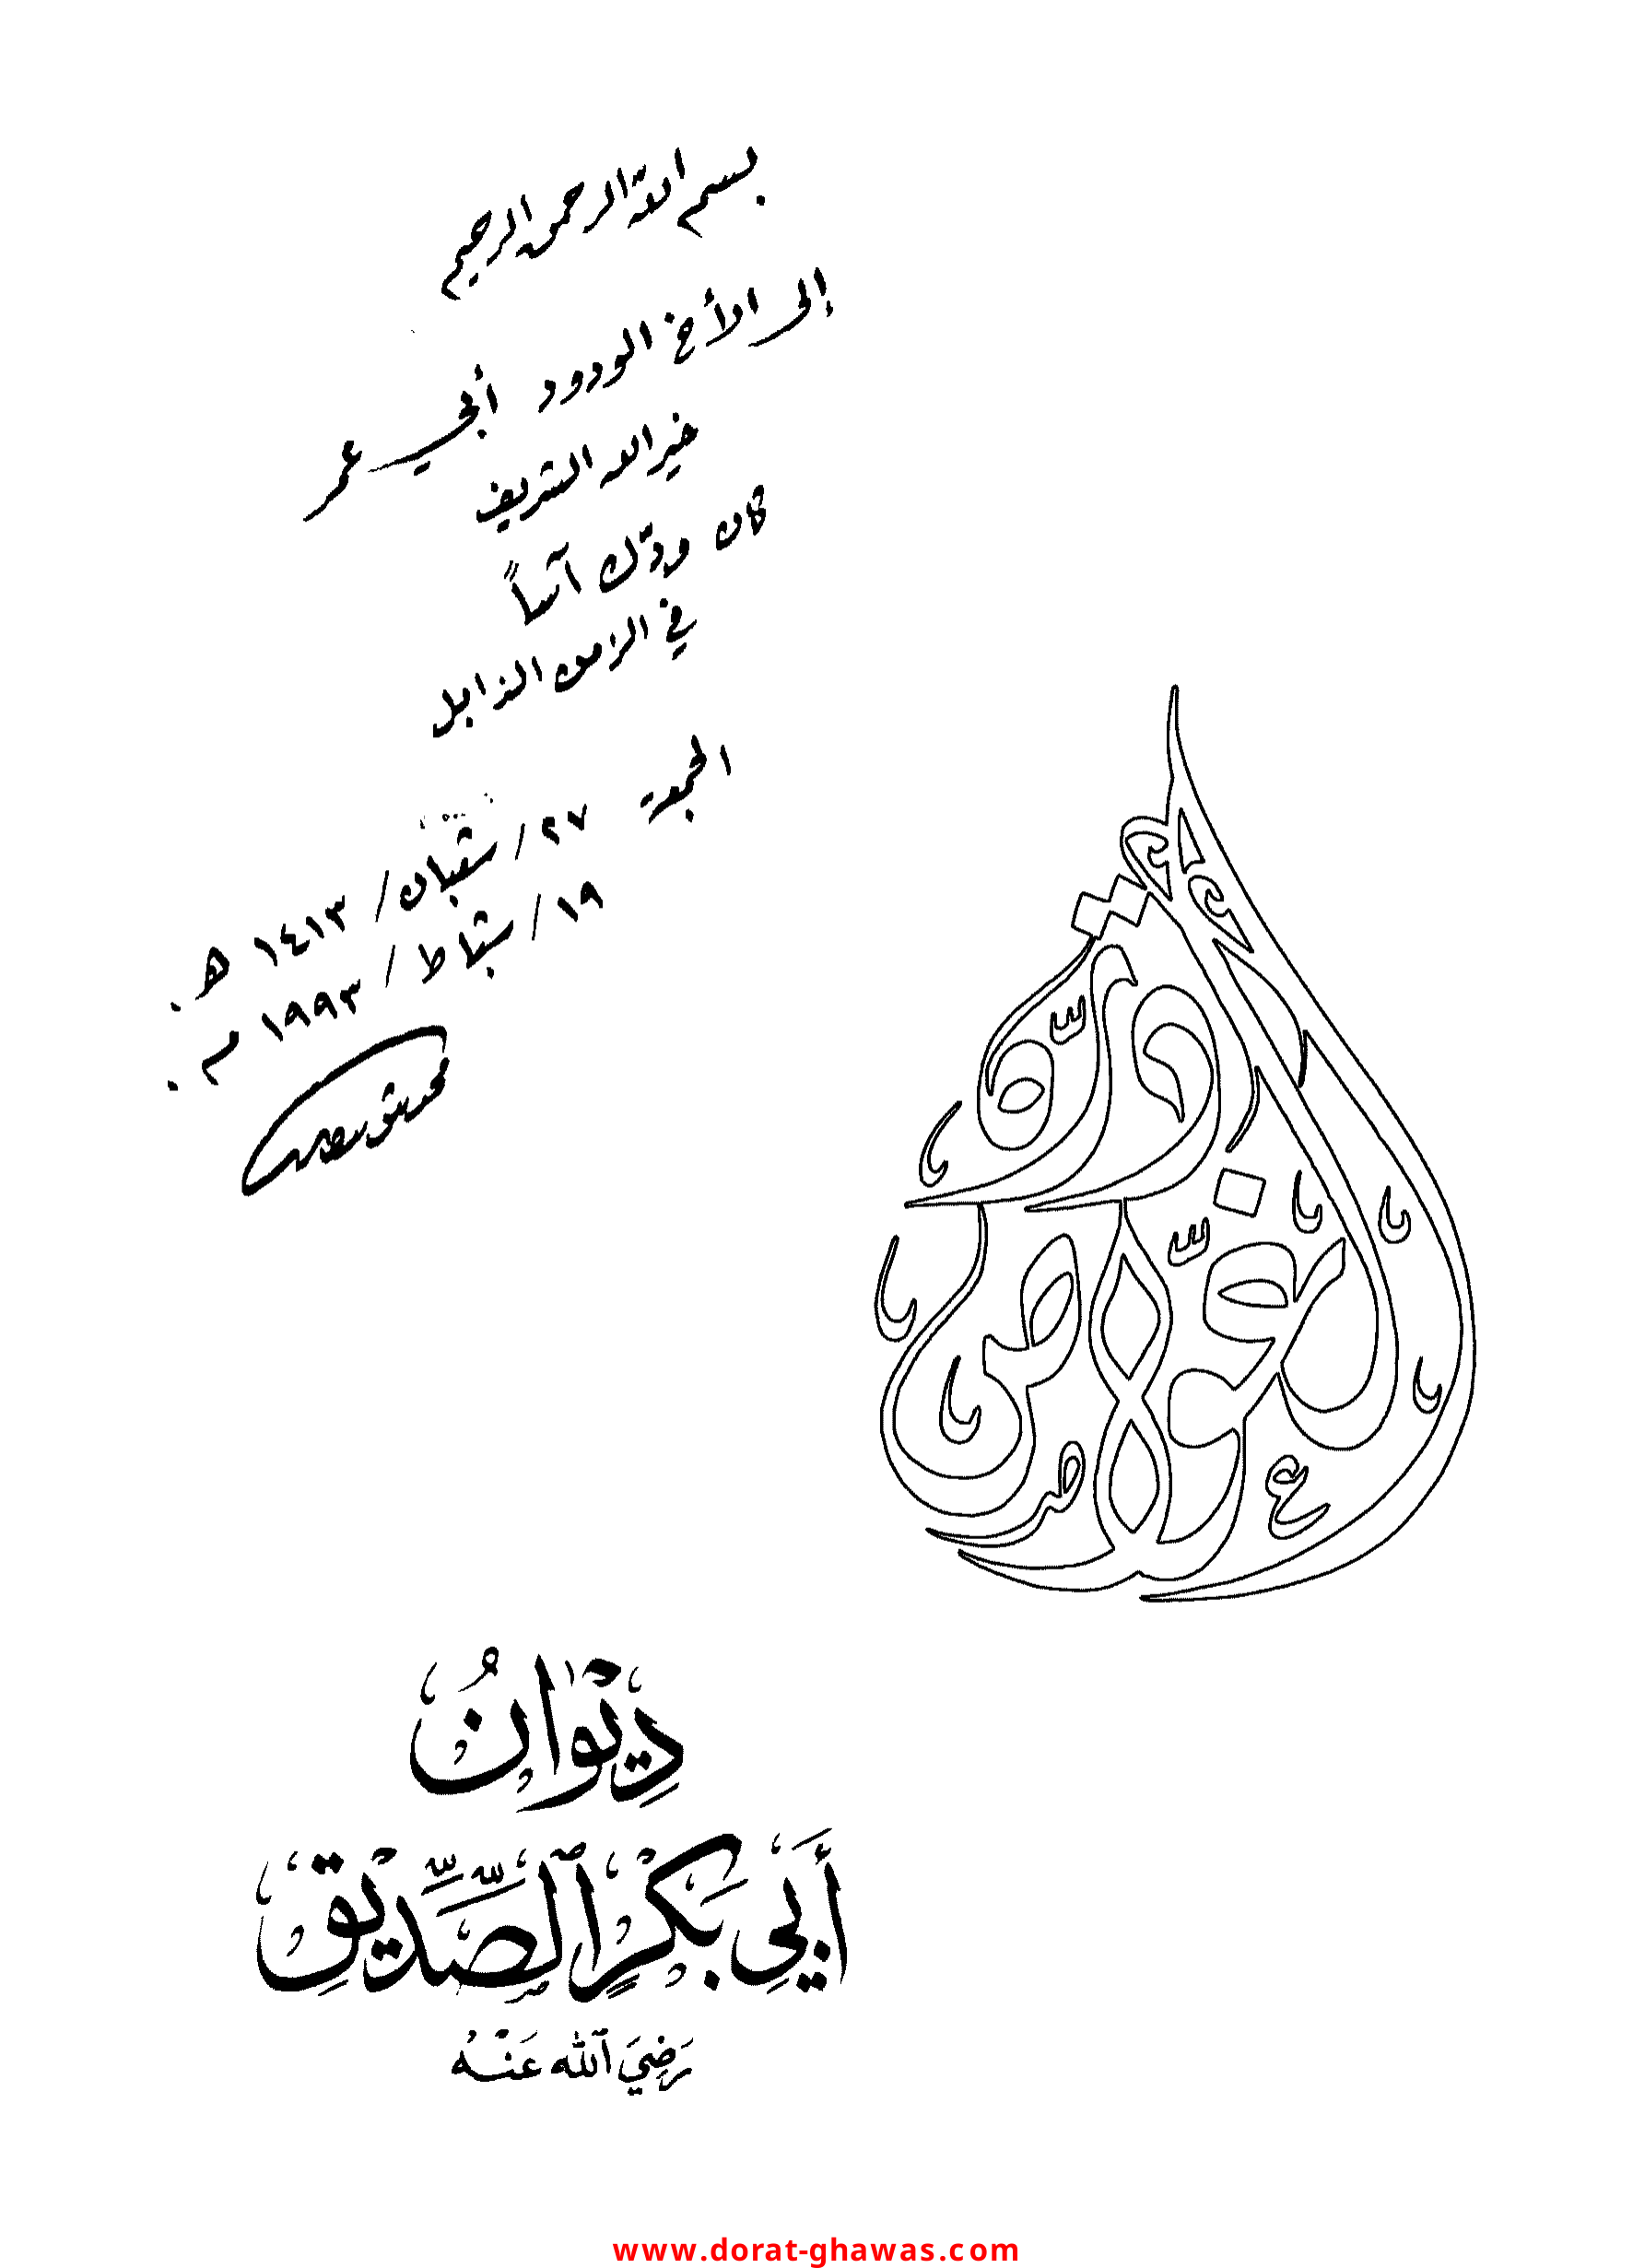 بسم الله الرحمن الرحيم
إلى الأخ الودود أبي عمر
خير الله الشريف
كان ودّك آسياً
في الزمن الذابل
الجمعة ٢٧ / شعبان / ١٤١٣ هـ.
١٩ / شباط / ١٩٩٣ م.
درة الغوّاص
دِيْوَانُ
أَبِي بَكْرٍ ٱلصِّدِّيْقِ
رَضِيَ ٱللّٰه عَنْهُ
www.dorat-ghawas.com